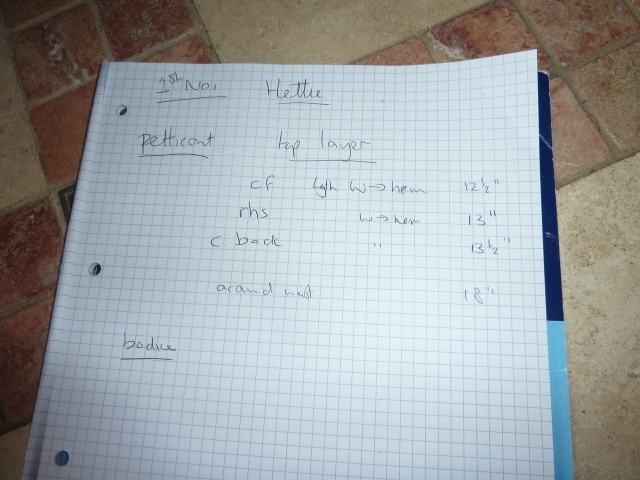 1st No. Hettie
Petticoat top layer
cf lgth W→hem 12½"
rhs W→hem 13"
c. back " 13½"
around waist 18"
bodice